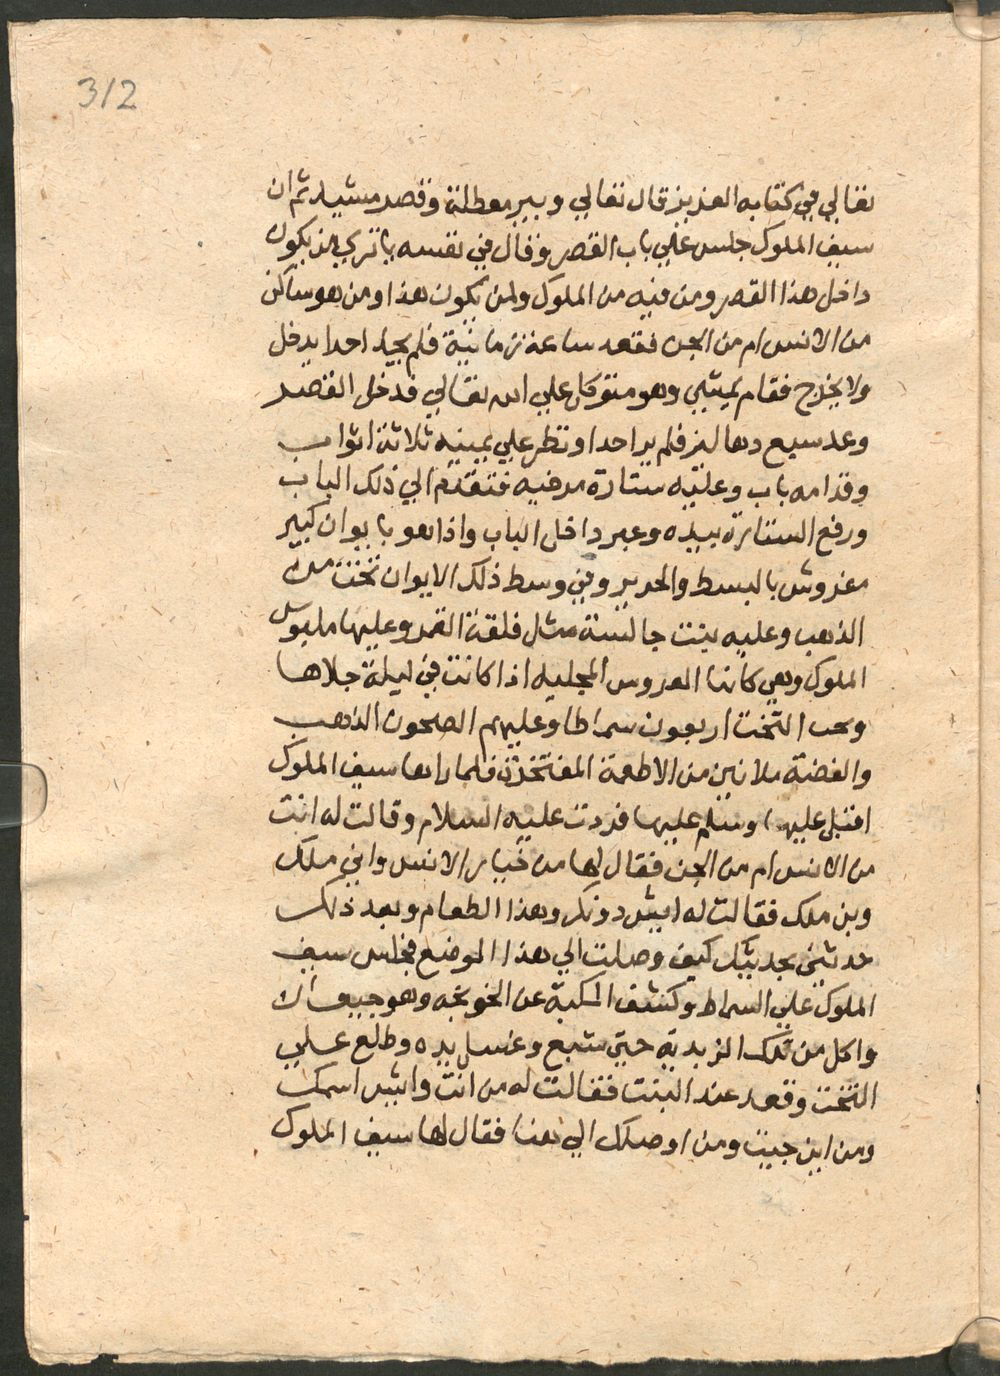 312
تعالي في كتابه العزيز قال تعالي وبير معطلة وقصر مشيد ثم ان
سيف الملوك جلس علي باب القصر وقال في نفسه يا تري من يكون
داخل هذا القصر ومن فيه من الملوك ولمن يكون هذا ومن هو ساكن
من الانس ام من الجن فقعد ساعة زمانية فلم يجد احدا يدخل
ولا يخرج فقام يمشي وهو متوكل علي الله تعالي فدخل القصر
وعد سبع دهاليز فلم ير احدا ونظر علي يمينه ثلاثة ابواب
وقدامه باب وعليه ستارة مرخيه فتقدم الي ذلك الباب
ورفع الستارة بيده وعبر داخل الباب واذا هو بايوان كبير
مفروش بالبسط والحرير وفي وسط ذلك الايوان تخت من
الذهب وعليه بنت جالسة مثل فلقة القمر وعليها ملبوس
الملوك وهي كانها العروس المجليه اذا كانت في ليلة جلاها
وتحت التخت اربعون سماطا وعليهم الصحون الذهب
والفضة ملانين من الاطعمة المفتخرة فلما راها سيف الملوك
اقبل عليها وسلم عليها فردت عليه السلام وقالت له انت
من الانس ام من الجن فقال لها من خيار الانس واني ملك
وبن ملك فقالت له ايش دونك وهذا الطعام وبعد ذلك
حدثني بحديثك كيف وصلت الي هذا الموضع فجلس سيف
الملوك علي السماط وكشف المكبة عن الخونجه وهو جيعان
واكل من تلك الزبدية حتي شبع وغسل يده وطلع علي
التخت وقعد عند البنت فقالت له من انت وايش اسمك
ومن اين جيت ومن اوصلك الي هنا فقال لها سيف الملوك